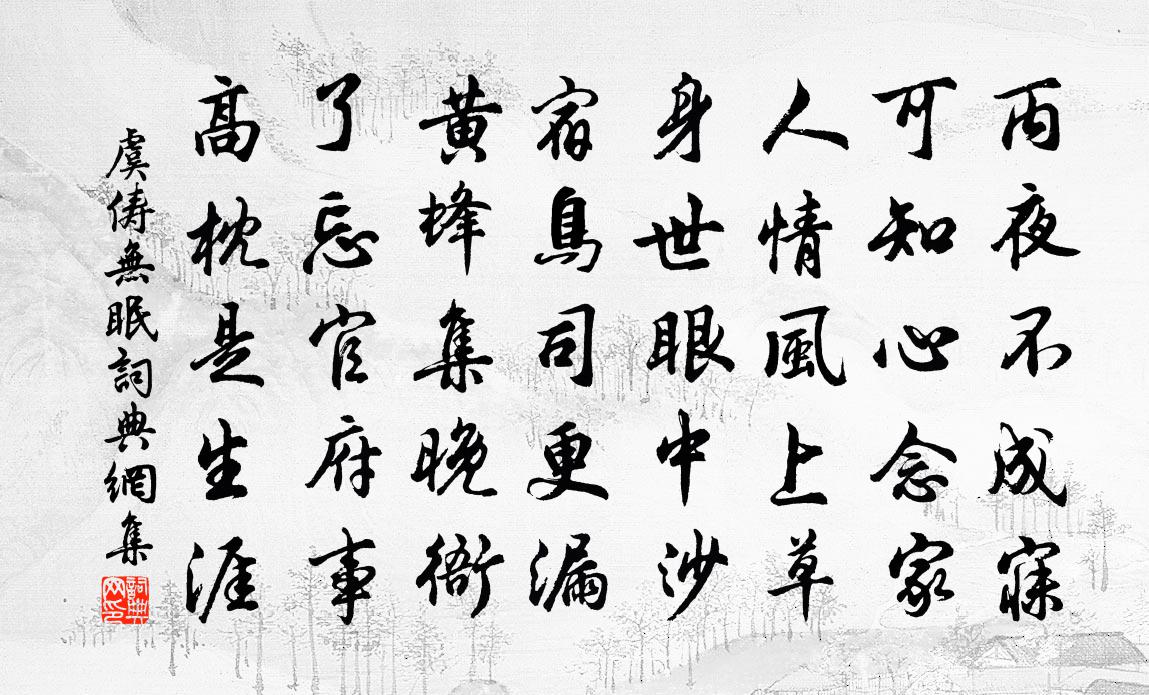 丙夜不成寐
可知心念家
人情風上草
身世眼中沙
宿鳥司更漏
黃蜂集晚衙
了忘官府事
高枕是生涯
虞儔無眠詞典網集
詞典網印